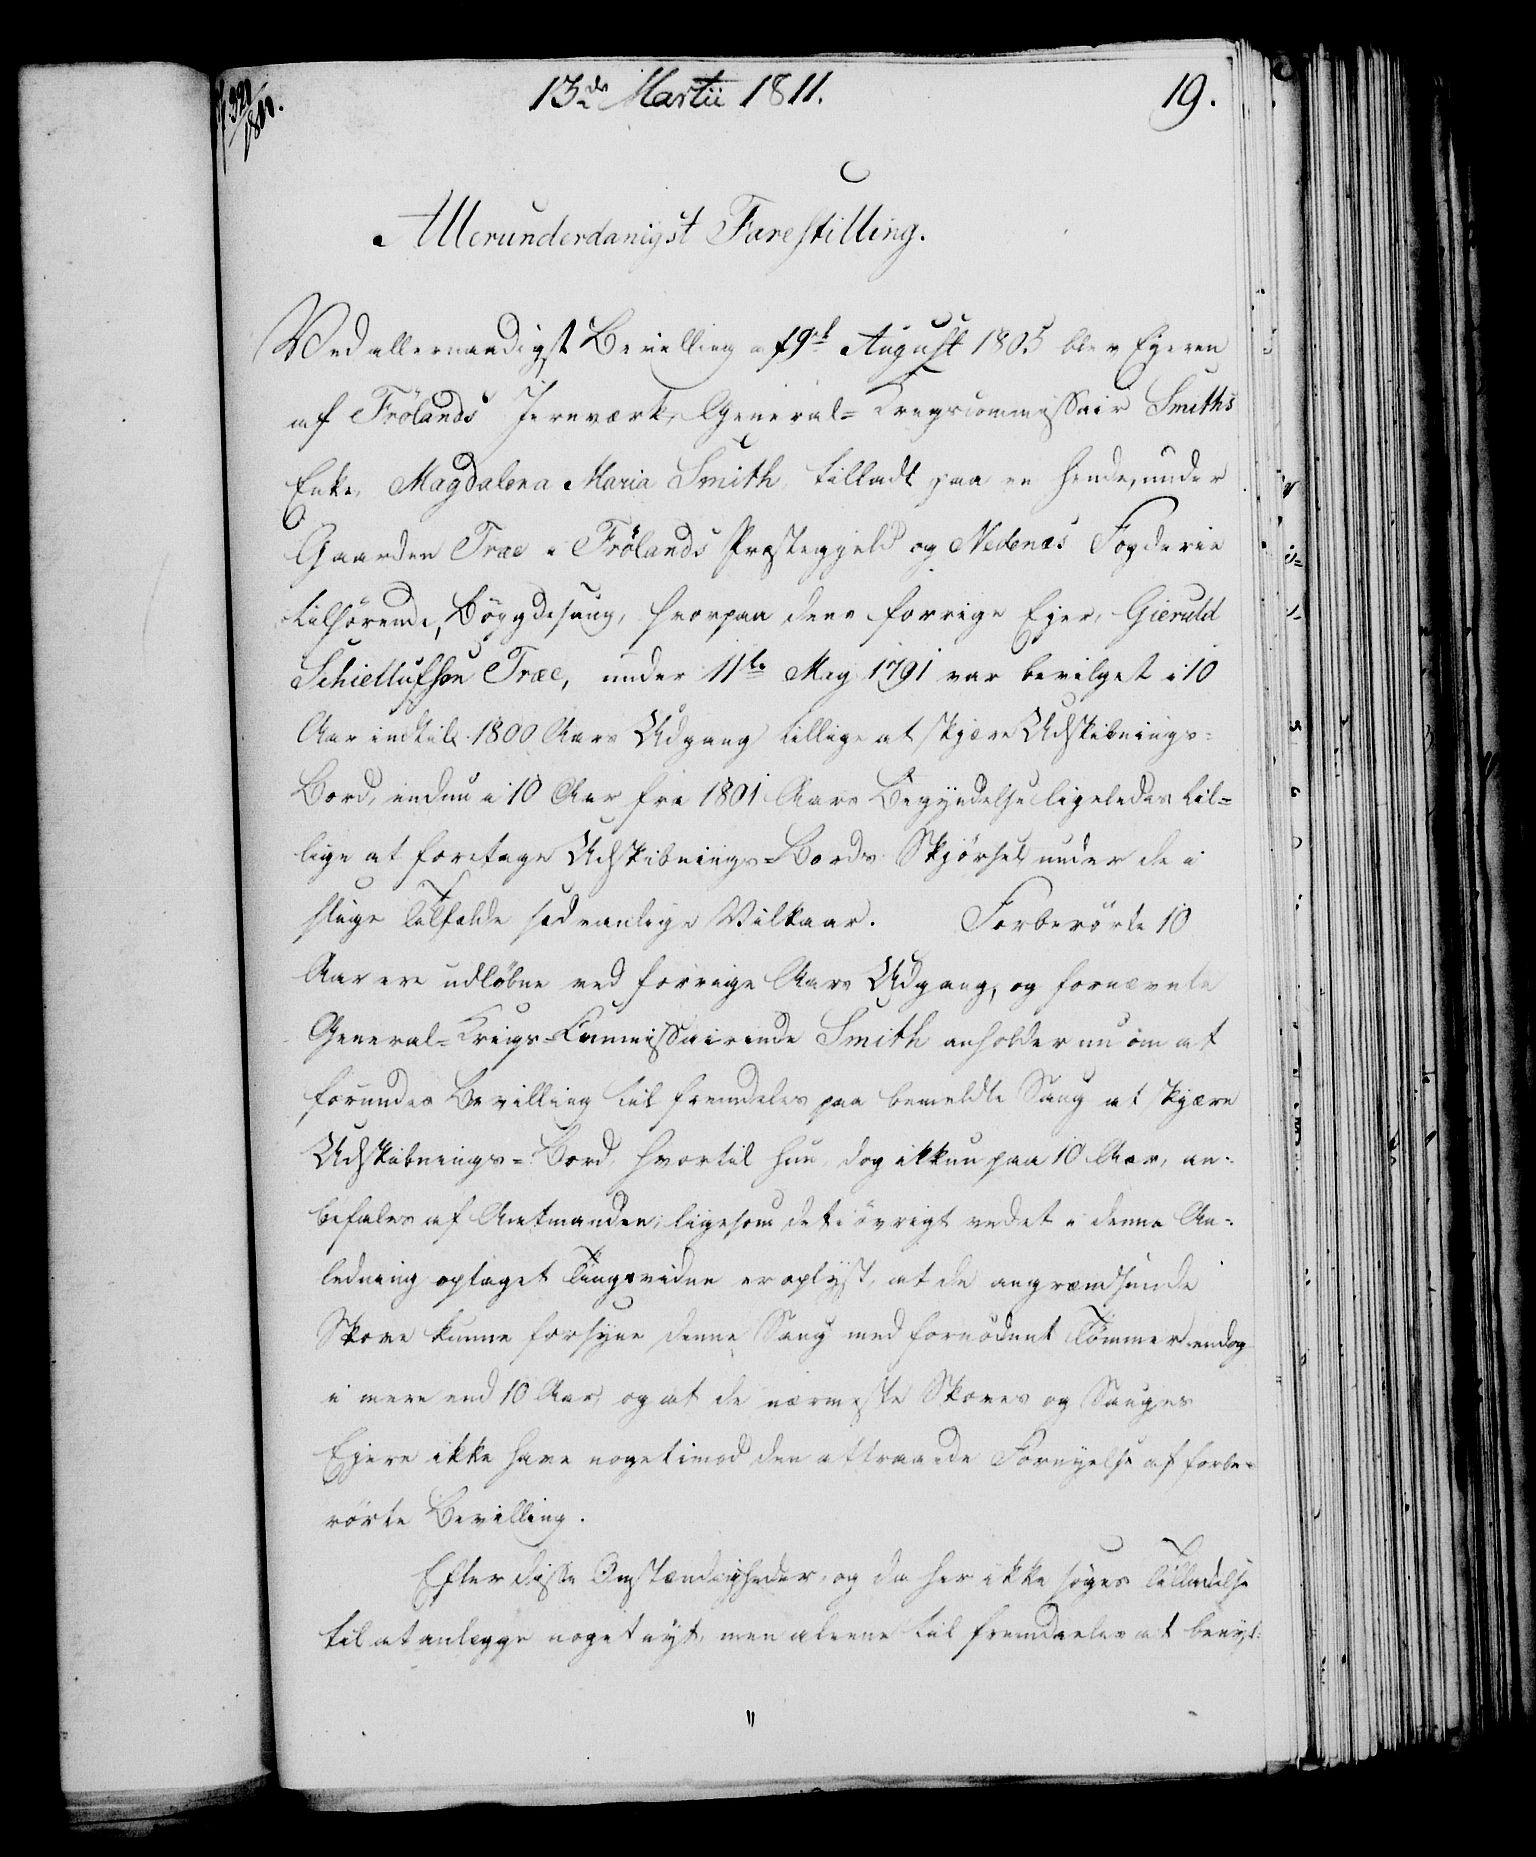 13de Martii 1811.
19.
321/1811.
Allerunderdanigst Forestilling.
Ved allernaadigst Bevilling af 9d August 1805 blev Ejeren
af Frölands Jernværk, General-Krigscommissair Smiths
Enke, Magdalena Maria Smith, tilladt paa en hende, under
Gaarden Træe i Frölands Præstegjeld og Nedenæs Fogderie
tilhörende, Böygdesaug, hvorpaa dens forrige Ejer, Gieruld
Schiellufsen Træe, under 11te May 1791 var bevilget i 10
Aar indtil 1800 Aars Udgang tillige at skjære Udskibnings-
Bord, endnu i 10 Aar fra 1801 Aars Begyndelse ligeledes til-
lige at foretage Udskibnings-Bords Skjörsel under de i
slige Tilfælde sædvanlige Vilkaar. Forberörte 10
Aar ere udlöbne ved forrige Aars Udgang, og fornævnte
General-Krigs-Commissairinde Smith anholder nu om at
forundes Bevilling til fremdeles paa bemeldte Saug at skjære
Udskibnings-Bord, hvortil hun dog ikkun paa 10 Aar, an-
befales af Amtmanden; ligesom det i övrigt ved et i denne An-
ledning optaget Tingsvidne er oplyst, at de angrændsende
Skove kunne forsyne denne Saug med fornödent Tömmer endog
i mere end 10 Aar, og at de nærmeste Skoves og Sauges
Ejere ikke have noget imod den attraaede Fornyelse af forbe-
rörte Bevilling.
Efter disse Omstændigheder, og da her ikke söges Tilladelse
til at anlægge noget nyt, men alene til fremdeles at benyt-
"